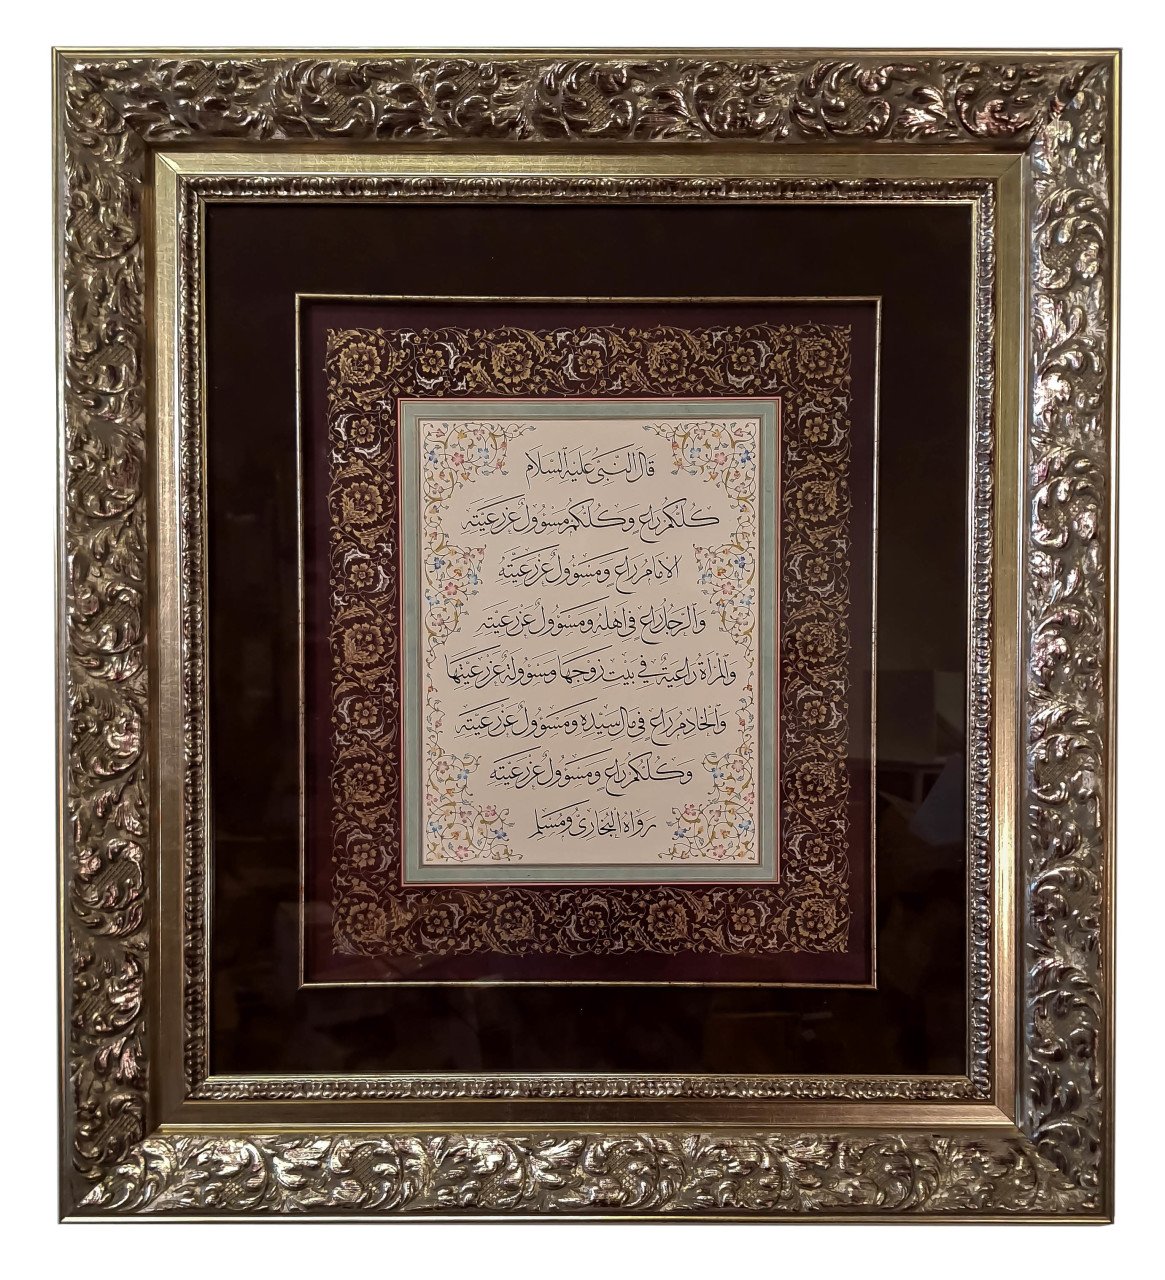 قال النبي عليه السلام
كلكم راع وكلكم مسؤول عن رعيته
الامام راع ومسؤول عن رعيته
والرجل راع في اهله ومسؤول عن رعيته
والمرأة راعية في بيت زوجها ومسؤولة عن رعيتها
والخادم راع في مال سيده ومسؤول عن رعيته
وكلكم راع ومسؤول عن رعيته
رواه البخاري ومسلم